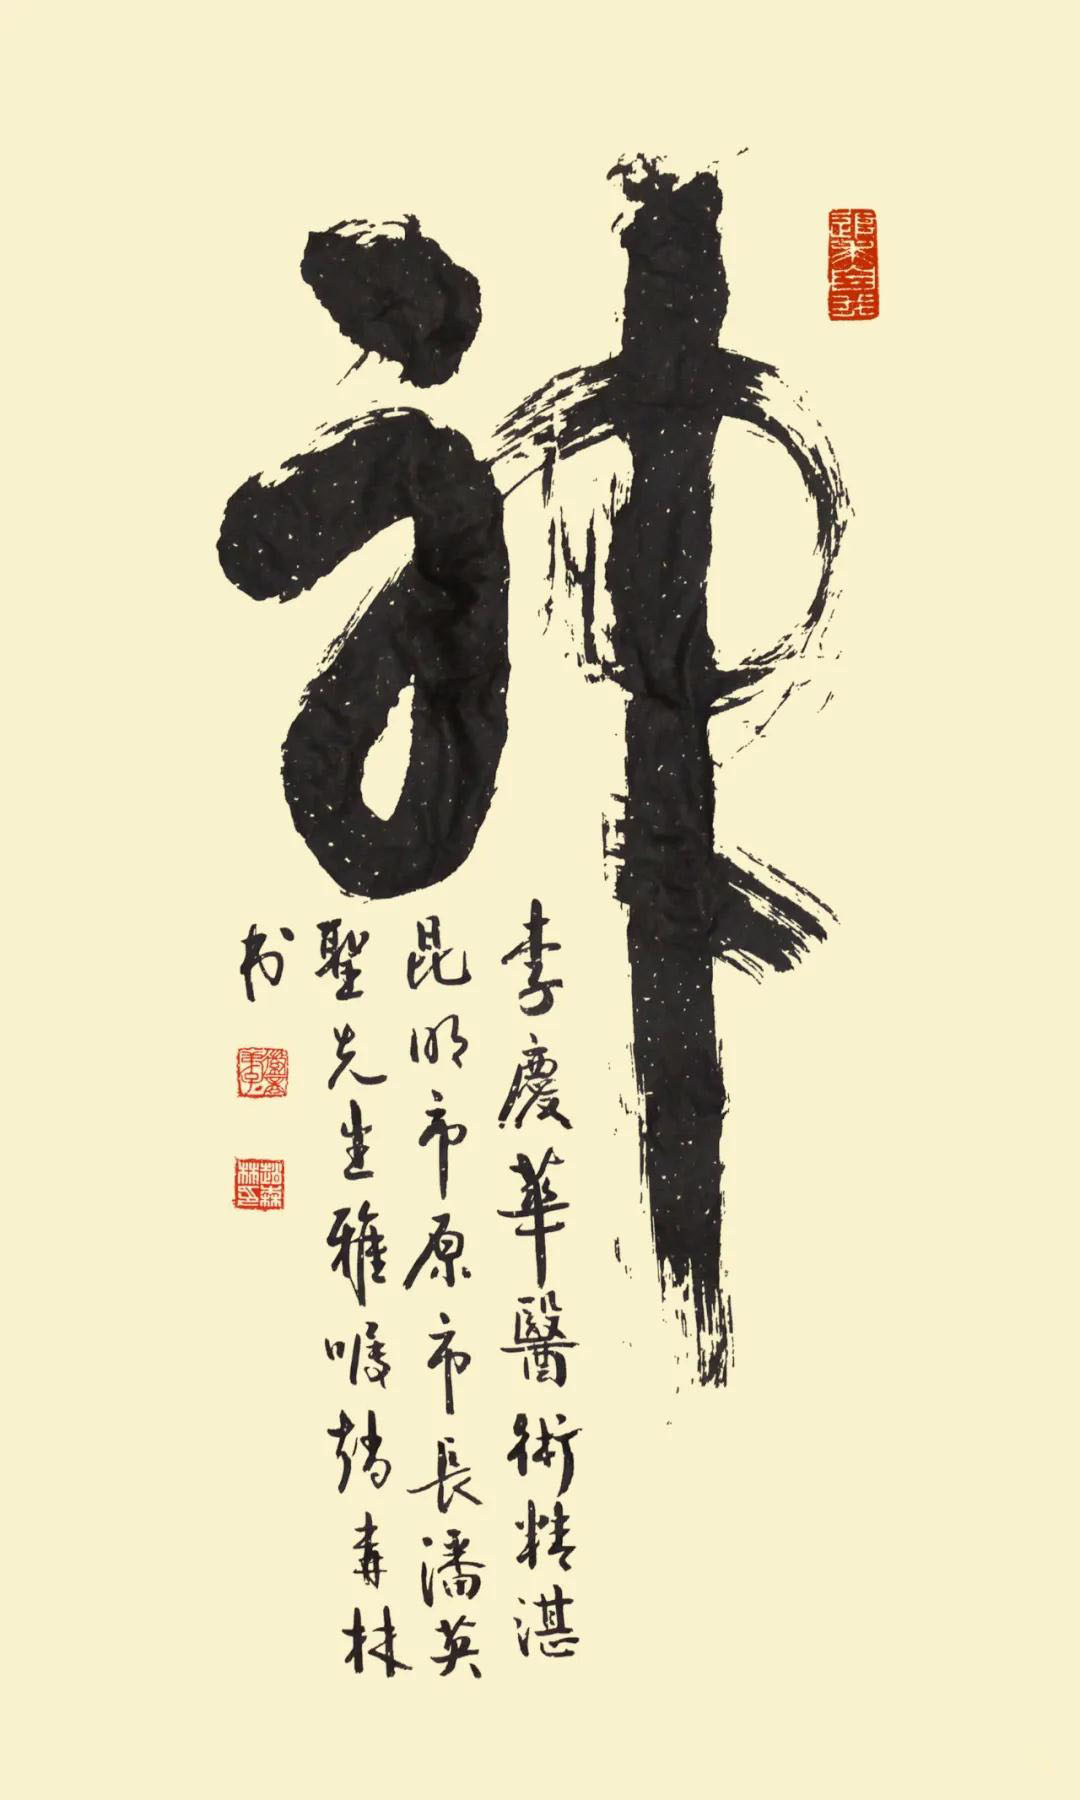 神
李慶華醫術精湛
昆明市原市長潘英
聖先生雅嘱趙春林
书